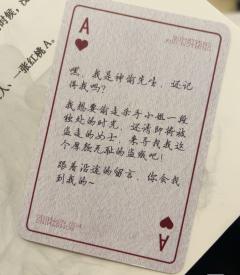 时候，没
一张红桃A。
人
A
嘿，我是神偷先生，还记
得我吗？
我想要偷走杀手小姐一段
独处的时光，还请即将被
盗走的女士，来寻找我这
个厚颜无耻的盗贼吧！
跟着沿途的留言，你会找
到我的~
A